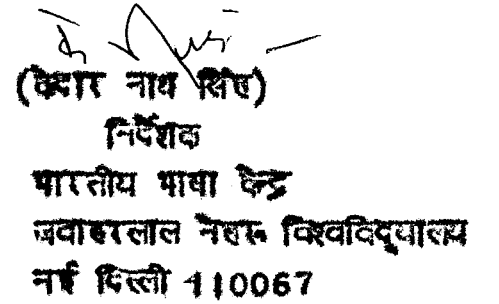 (केदार नाथ सिंह)
निर्देशक
भारतीय भाषा केन्द्र
जवाहरलाल नेहरू विश्वविद्यालय
नई दिल्ली 110067